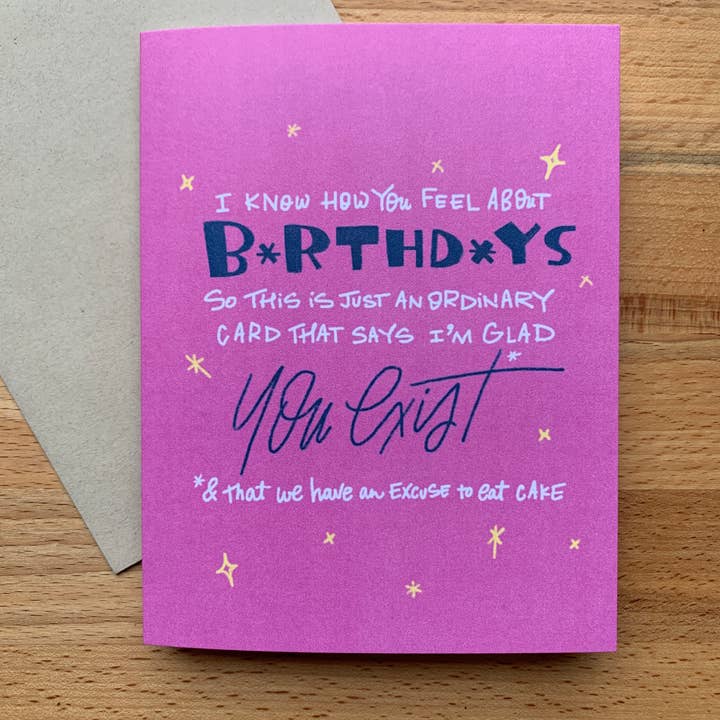 I KNOW HOW YOU FEEL ABOUT
B*RTHD*YS
SO THIS IS JUST AN ORDINARY
CARD THAT SAYS I'M GLAD
you exist*
*& that we have an EXCUSE to eat CAKE